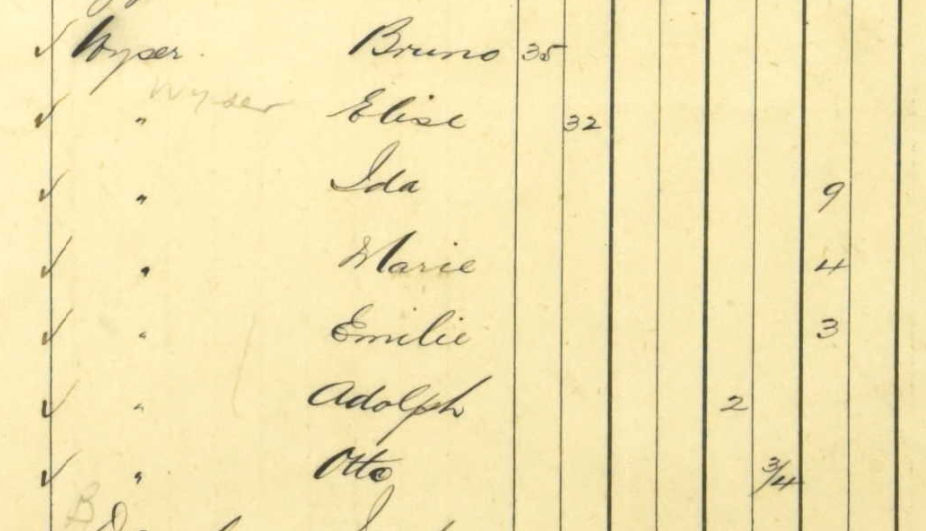 ✓ Wyser Bruno 35
Wyser
✓ " Elise 32
✓ " Ida 9
✓ " Marie 4
✓ " Emilie 3
✓ " Adolph 2
✓ " Otto 3/4
B